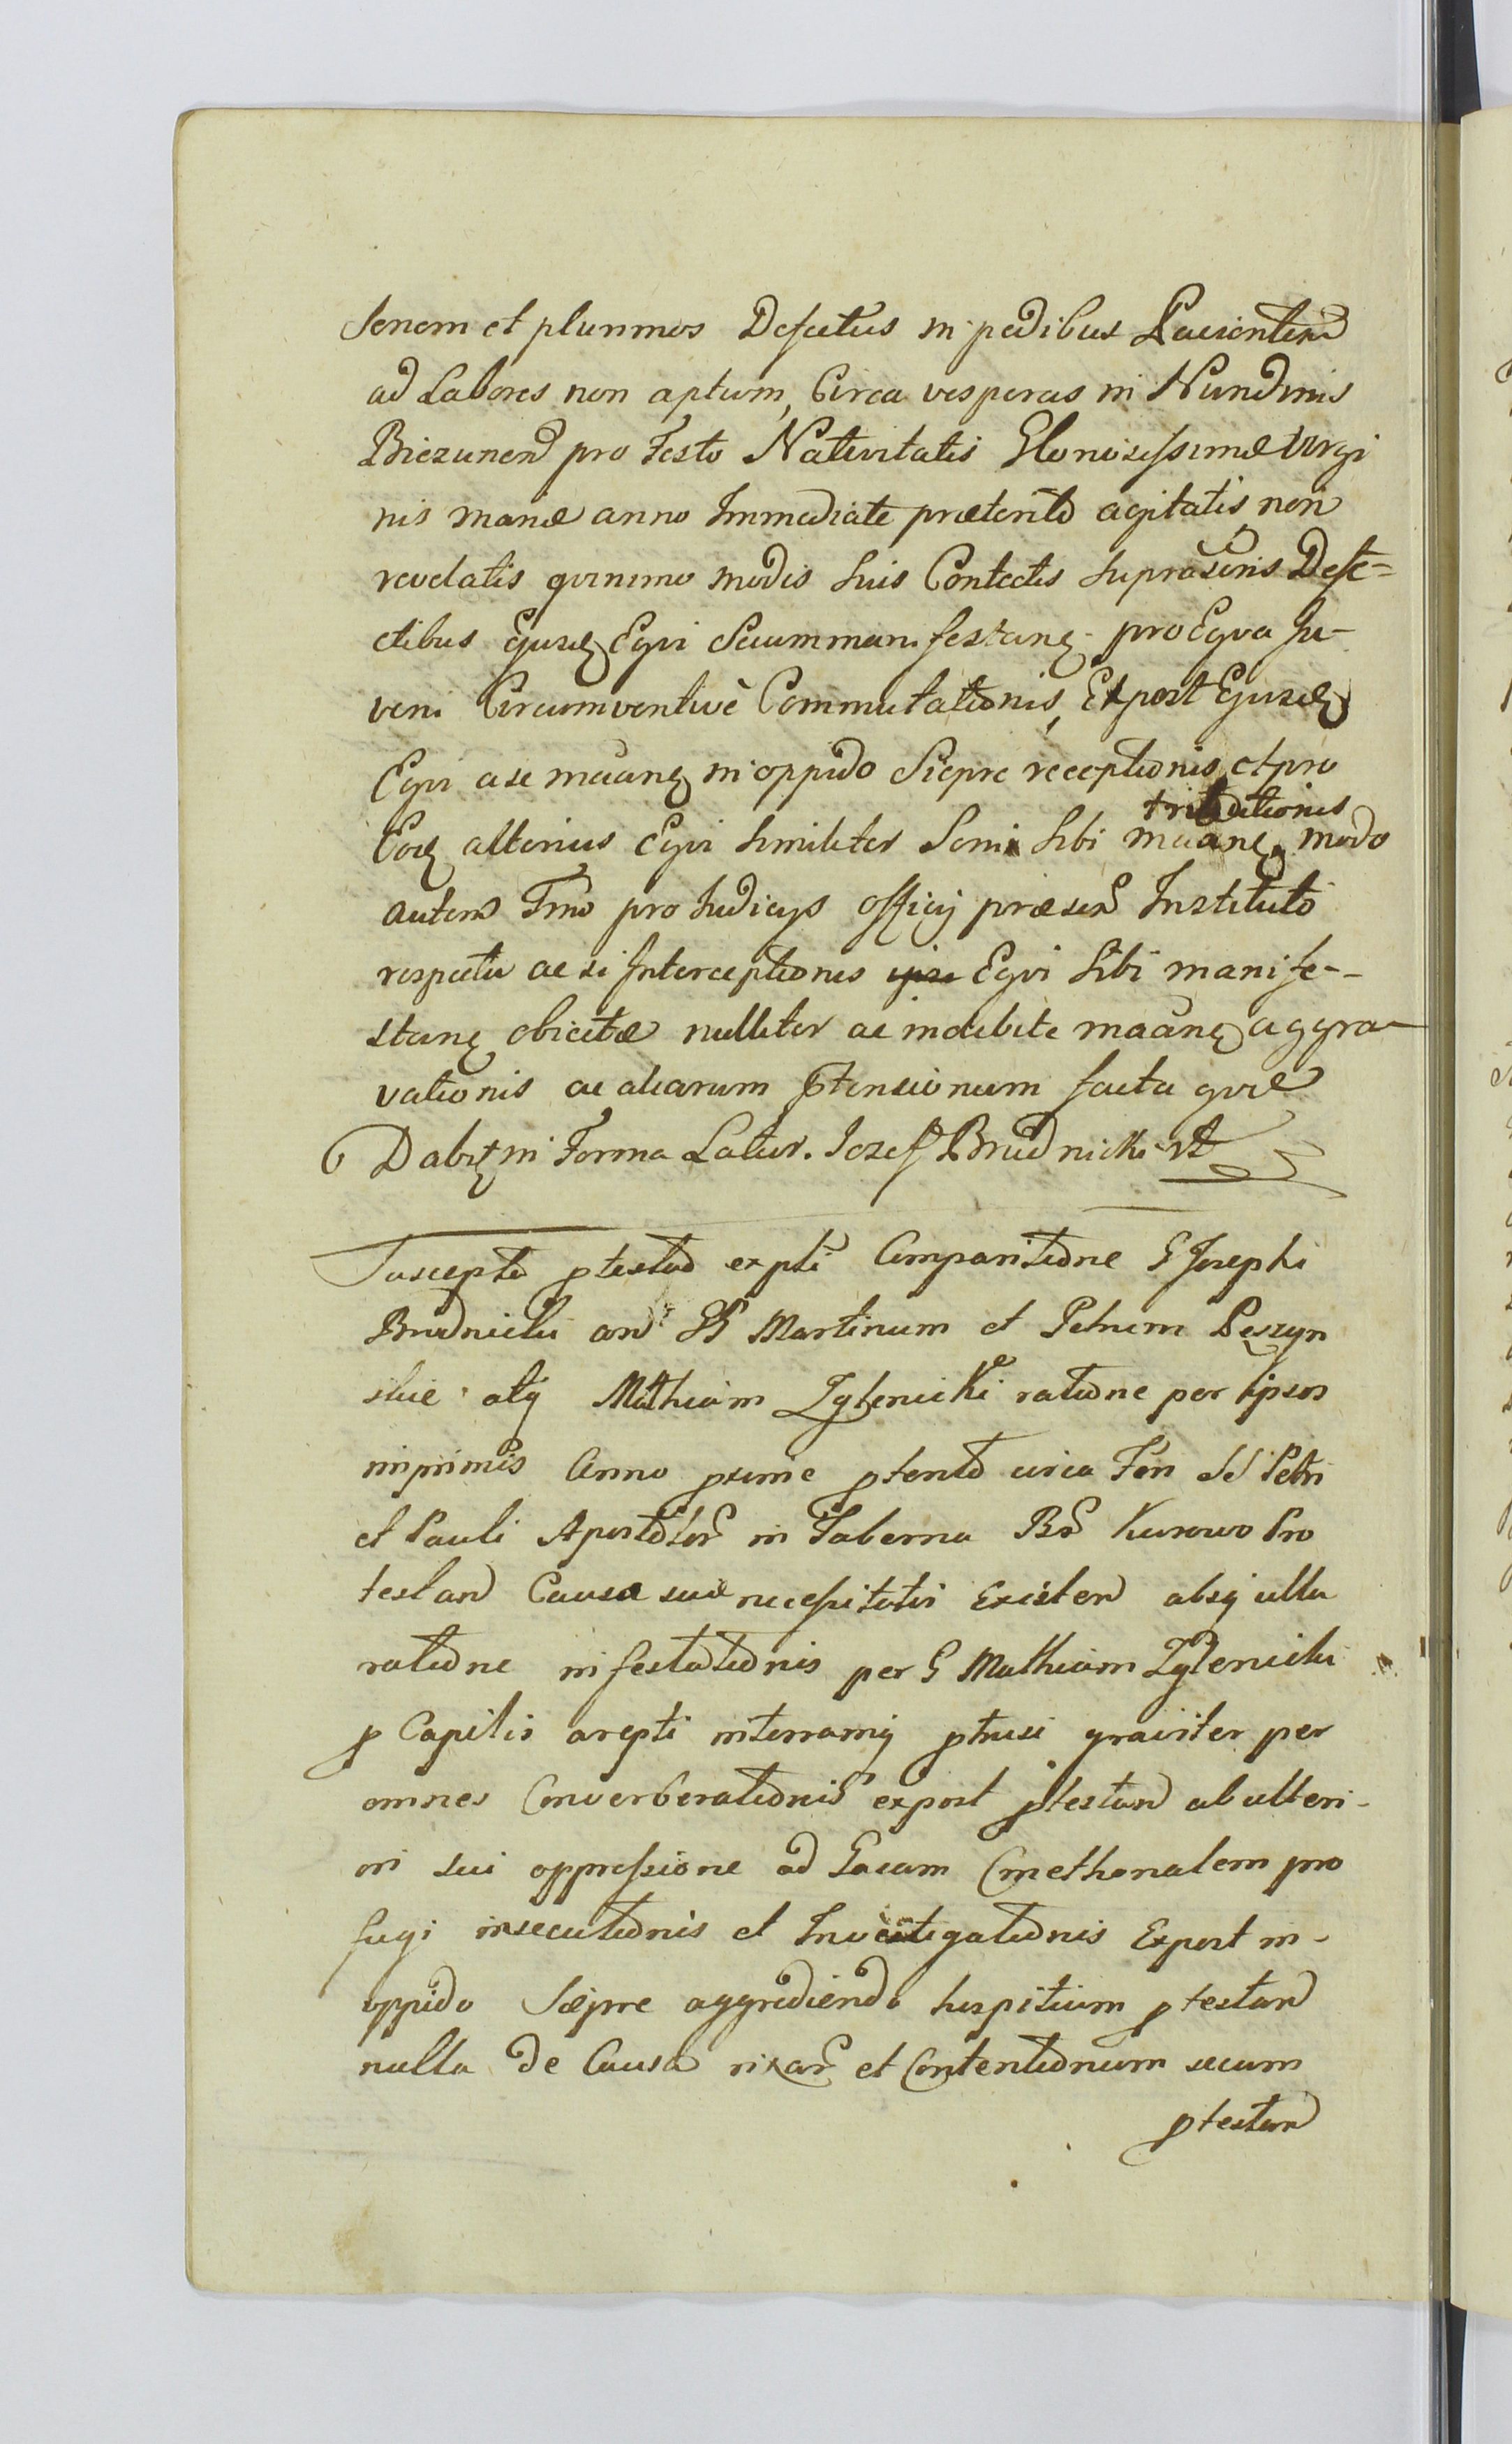 Senem et plurimos Defectus in pedibus Pacientem
ad Labores non aptum, Circa vesperas in Nundinis
Biezunen pro Festo Nativitatis Gloriosissimæ Virgi
nis Mariæ anno Immediate præterito agitatis, non
revelatis quinimo modis suis Contectis suprascris Defe=
ctibus Ejusdq Eqvi Secum manifestanq pro Eqva Ju-
veni Circumventivè Commutationis, Expost Ejusdq
Eqvi a se maanq in oppido Siepre receptionis, et pro
tributionis
Eodq alterius Eqvi similiter Seni sibi maanq modo
autem Tmo pro Judicys officij præsen Instituto
respectu ac si Interceptionis ipsi Eqvi Sibi manife-
stanq obicitæ nulliter ac indebite maanq aggra-
vationis ac aliarum ptensionum facta qvæ
Dabitq in Forma Latius. Jozef Brudnicki vt
Suscepta ptestao expti Comparitione G Josephi
Brudnicki con GG Martinum et Petrum Peszyn
skie atq Mathiam Zglenicki ratione per ipsos
inprimis Anno pxime pterito circa Fen SS Petri
et Pauli Apostolor in Taberna Br Kurowo Pro
testan Causa suæ necessitatis Existen absq ulla
ratione infestationis per G Mathiam Zglenicki
p Capilis arepti interramq ptrusi graviter per
omnes Converberationis expost ptestan ab ulteri-
ori sui oppressione ad Eacam Cmethonalem pro
fugi insecutionis et Investigationis Expost in-
oppido Sæpre aggrediendo hospitium ptestan
nulla de Causa rixar et Contentionum secum
ptestan